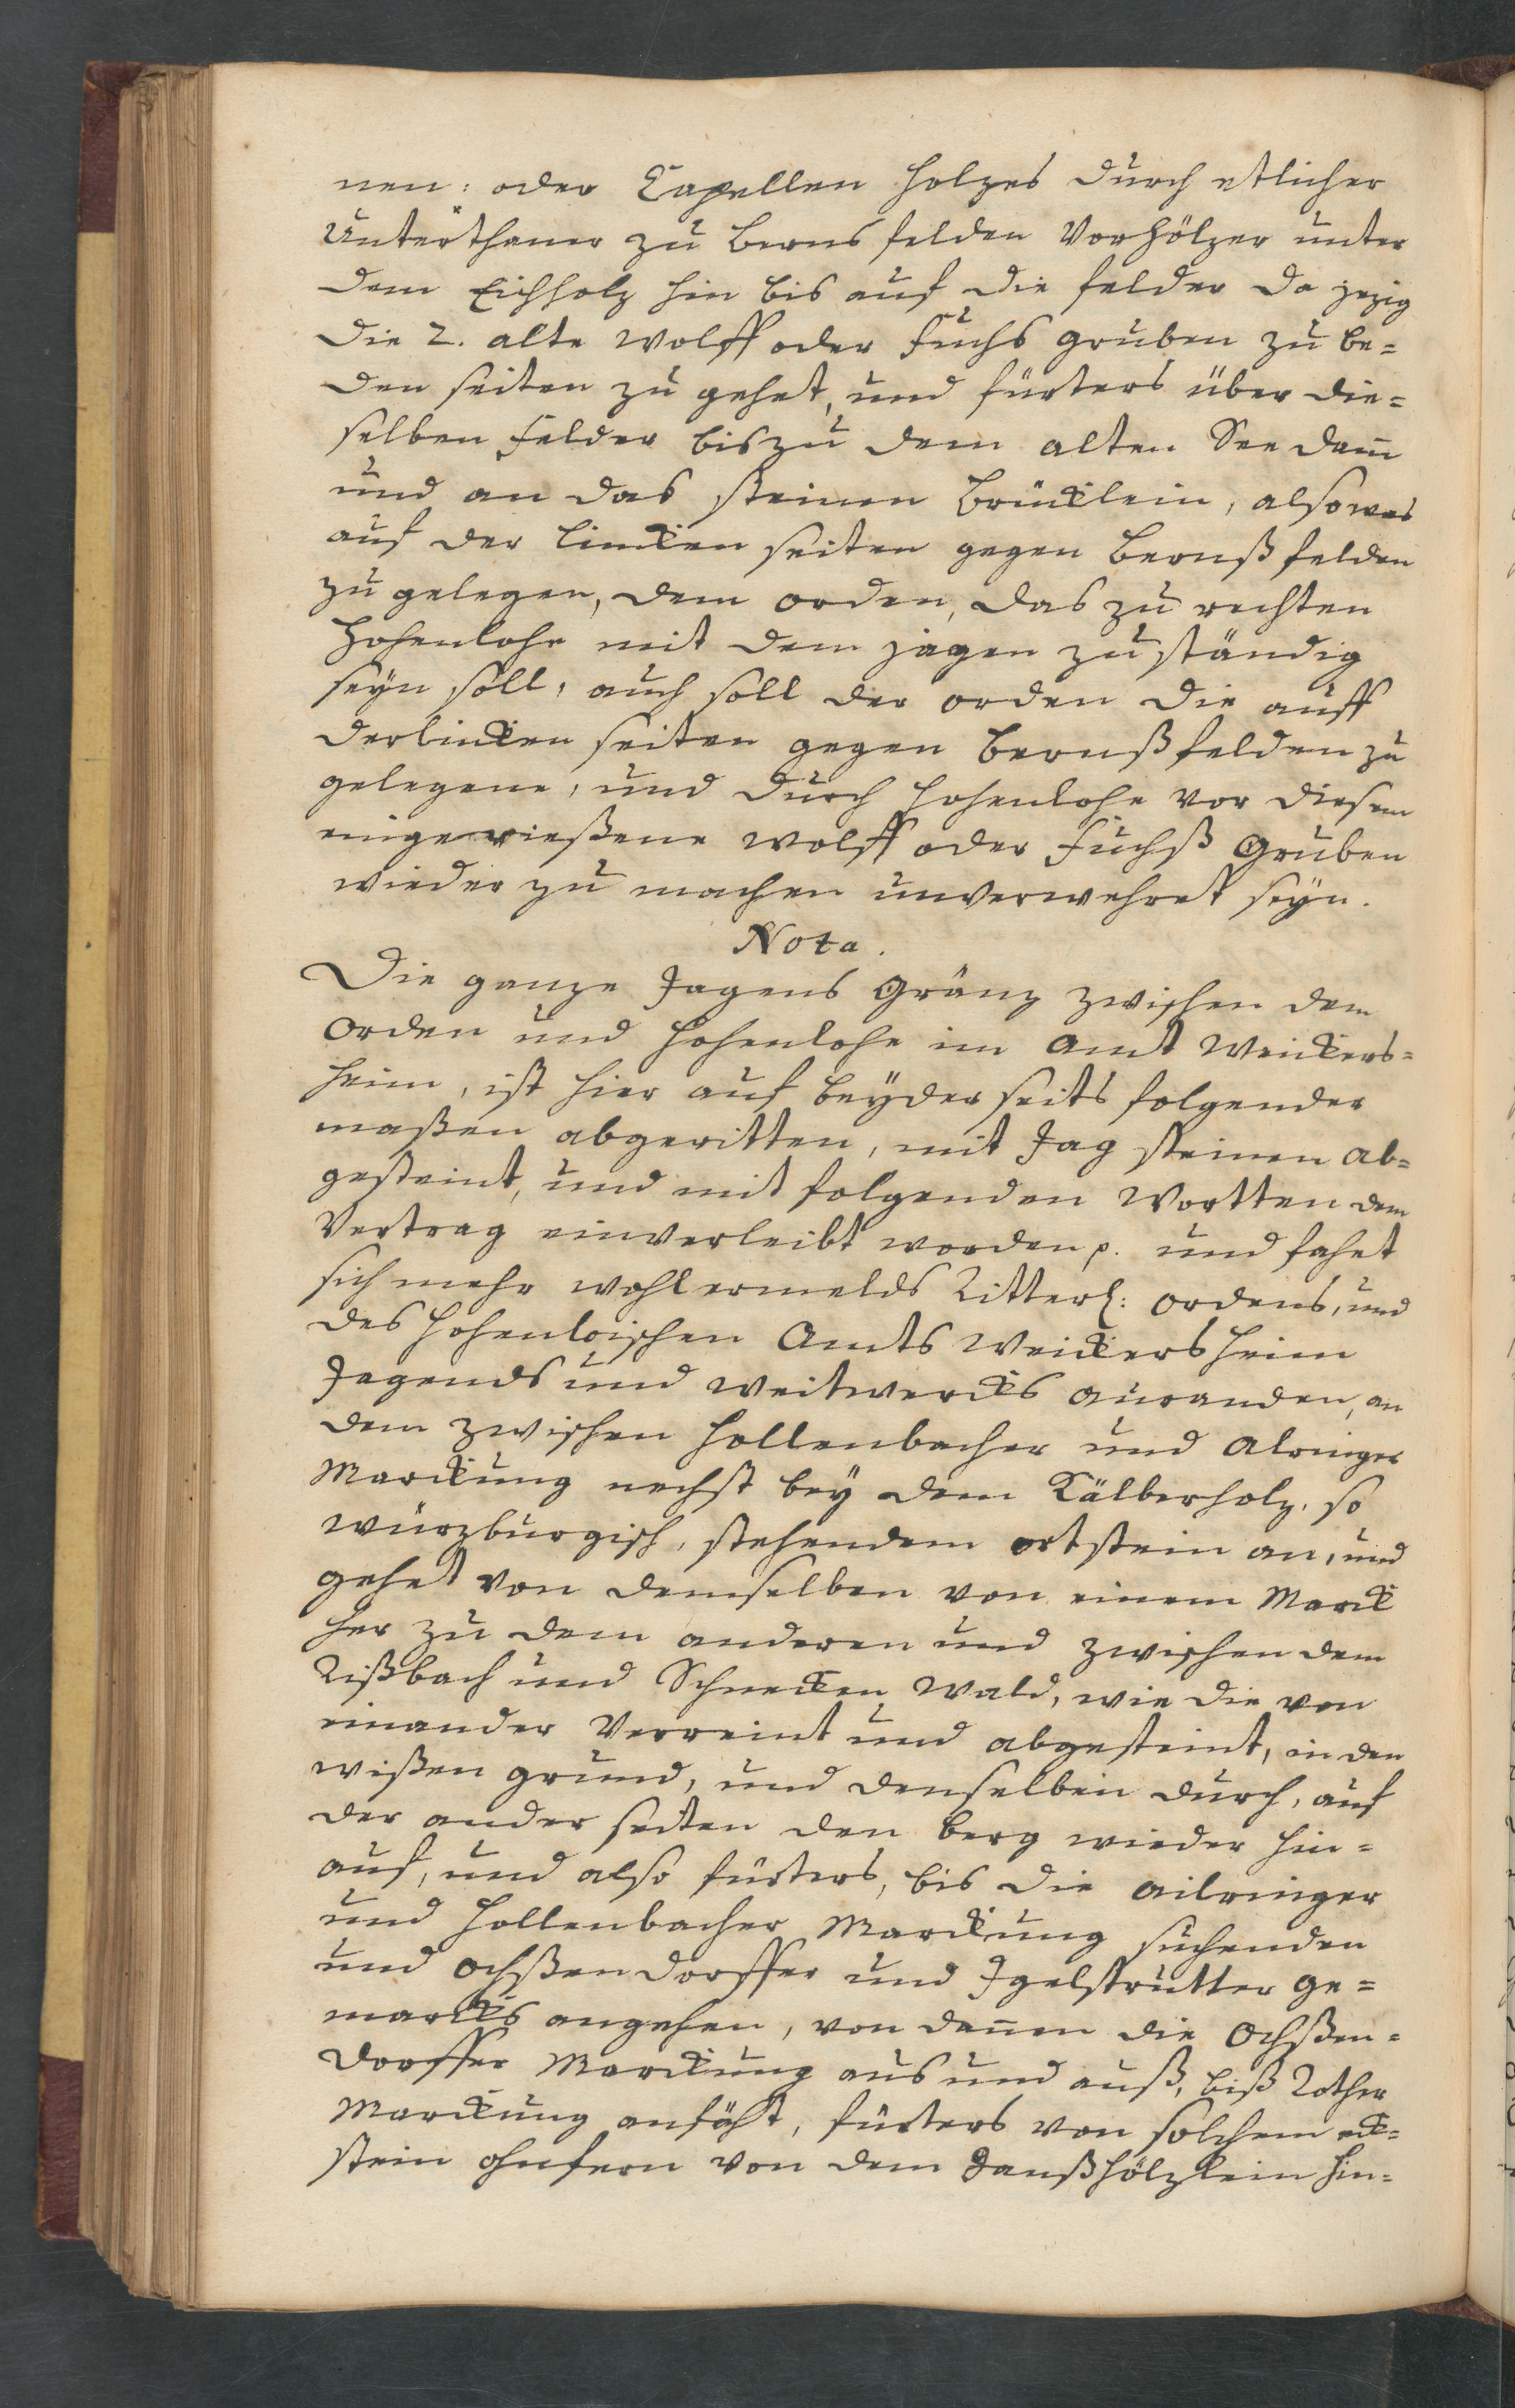 nen: oder Capellen holzes durch etlicher
Unterthaner zu Berns felden Vorhölzer unter
dem Eichholz hin bis auf die felder da jezig
die 2. alte Wolff oder Fuchs gruben zu be=
den seiten zu gehet, und fürters über die=
selben Felder bis zu dem alten See dam̅
und an das steinen Brücklein, also was
auf der lincken seiten gegen Bernßfelden
zu gelegen, dem orden, das zu rechten
Hohenlohe mit dem jagen zuständig
seyn soll, auch soll der orden die auff
der lincken seiten gegen Bernßfelden zu
gelegene, und durch Hohenlohe vor diesem
eingerießene Wolff oder Fuchß Gruben
wieder zu machen unverwehret seyn.
Nota.
Die ganze Jagens Gränz zwischen dem
Orden und Hohenlohe im Amt Weickers=
heim, ist hier auf beyder seits folgender
maßen abgeritten, mit Jag steinen ab=
gesteint, und mit folgenden Wortten dem
Vertrag einverleibt worden p. und fahet
sich mehr wohlermelds Ritterl: ordens, und
des Hohenloischen Amts Weickersheim
Jagends und Weitwercks anranden, an
dem zwischen Hollenbacher und Alringer
Marckung nechst bey dem Kälberholz, so
würzburgisch, stehendem ortstein an, und
gehet von demselben von einem Marck
her zu dem anderen und zwischen dem
Rißbach und Schnecken Wald, wie die von
einander Verreint und abgesteint, in den
wißen grund, und denselben durch, auf
der ander seiten den berg wieder hin=
auf, und also fürters, bis die Ailringer
und Hollenbacher Marckung suchenden
und Ochßendorffer und Igelstrutter Ge=
marcks angehen, von dan̅en die Ochßen=
dorffer Marckung aus und auß, biß Rother
Marckung anfäht, fürters von solchem eck=
stein ohnfern von dem Danßhölzlein hin=